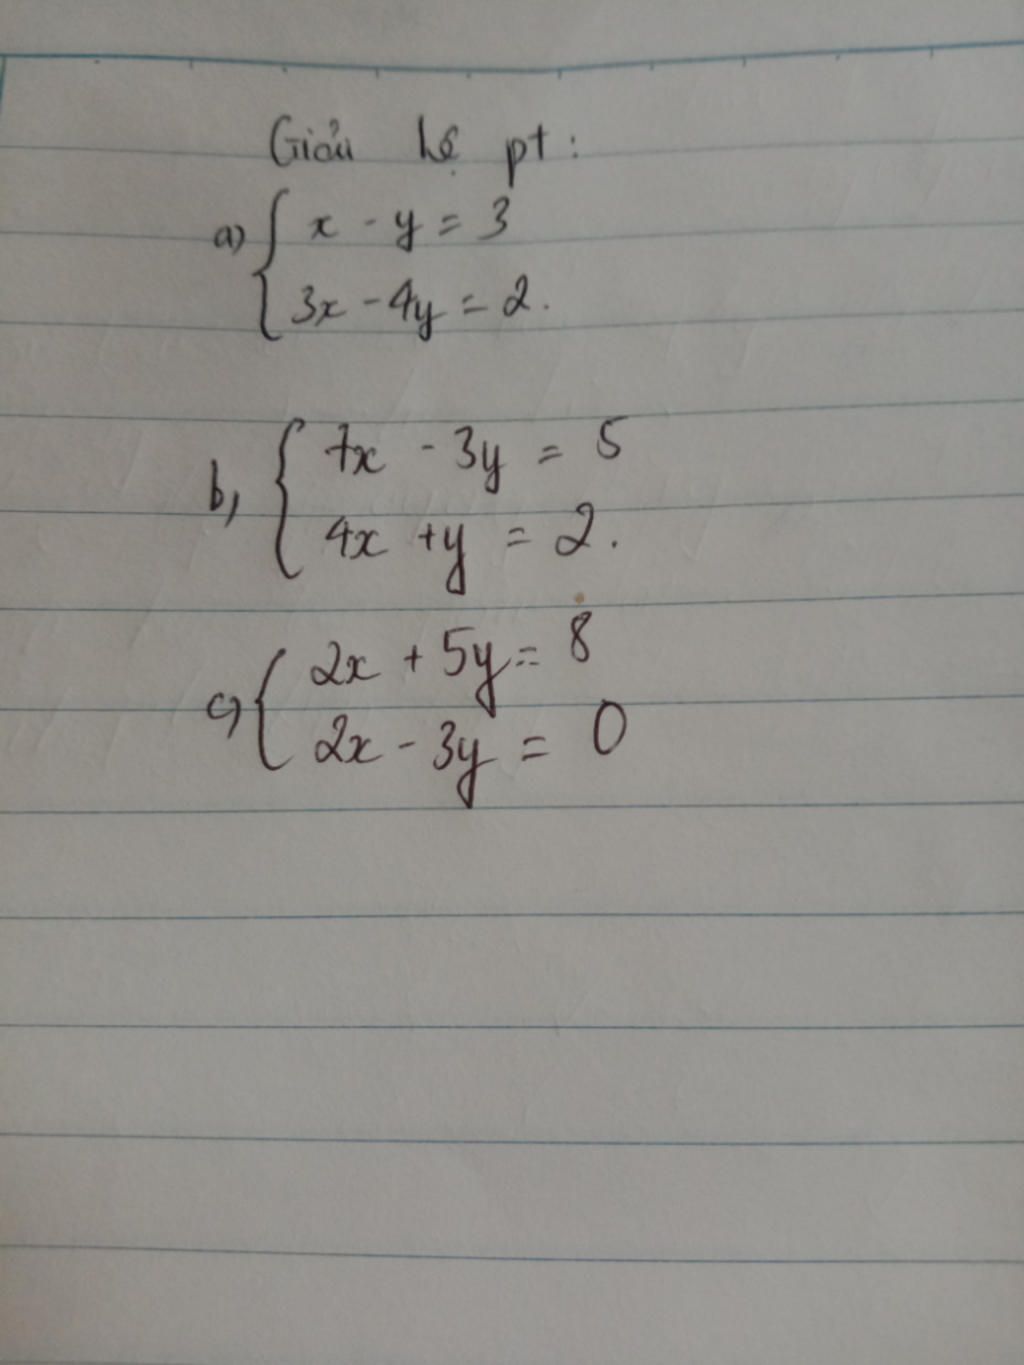 Giải hệ pt:
a) { x - y = 3
3x - 4y = 2.
b, { 7x - 3y = 5
4x + y = 2.
c) { 2x + 5y = 8
2x - 3y = 0